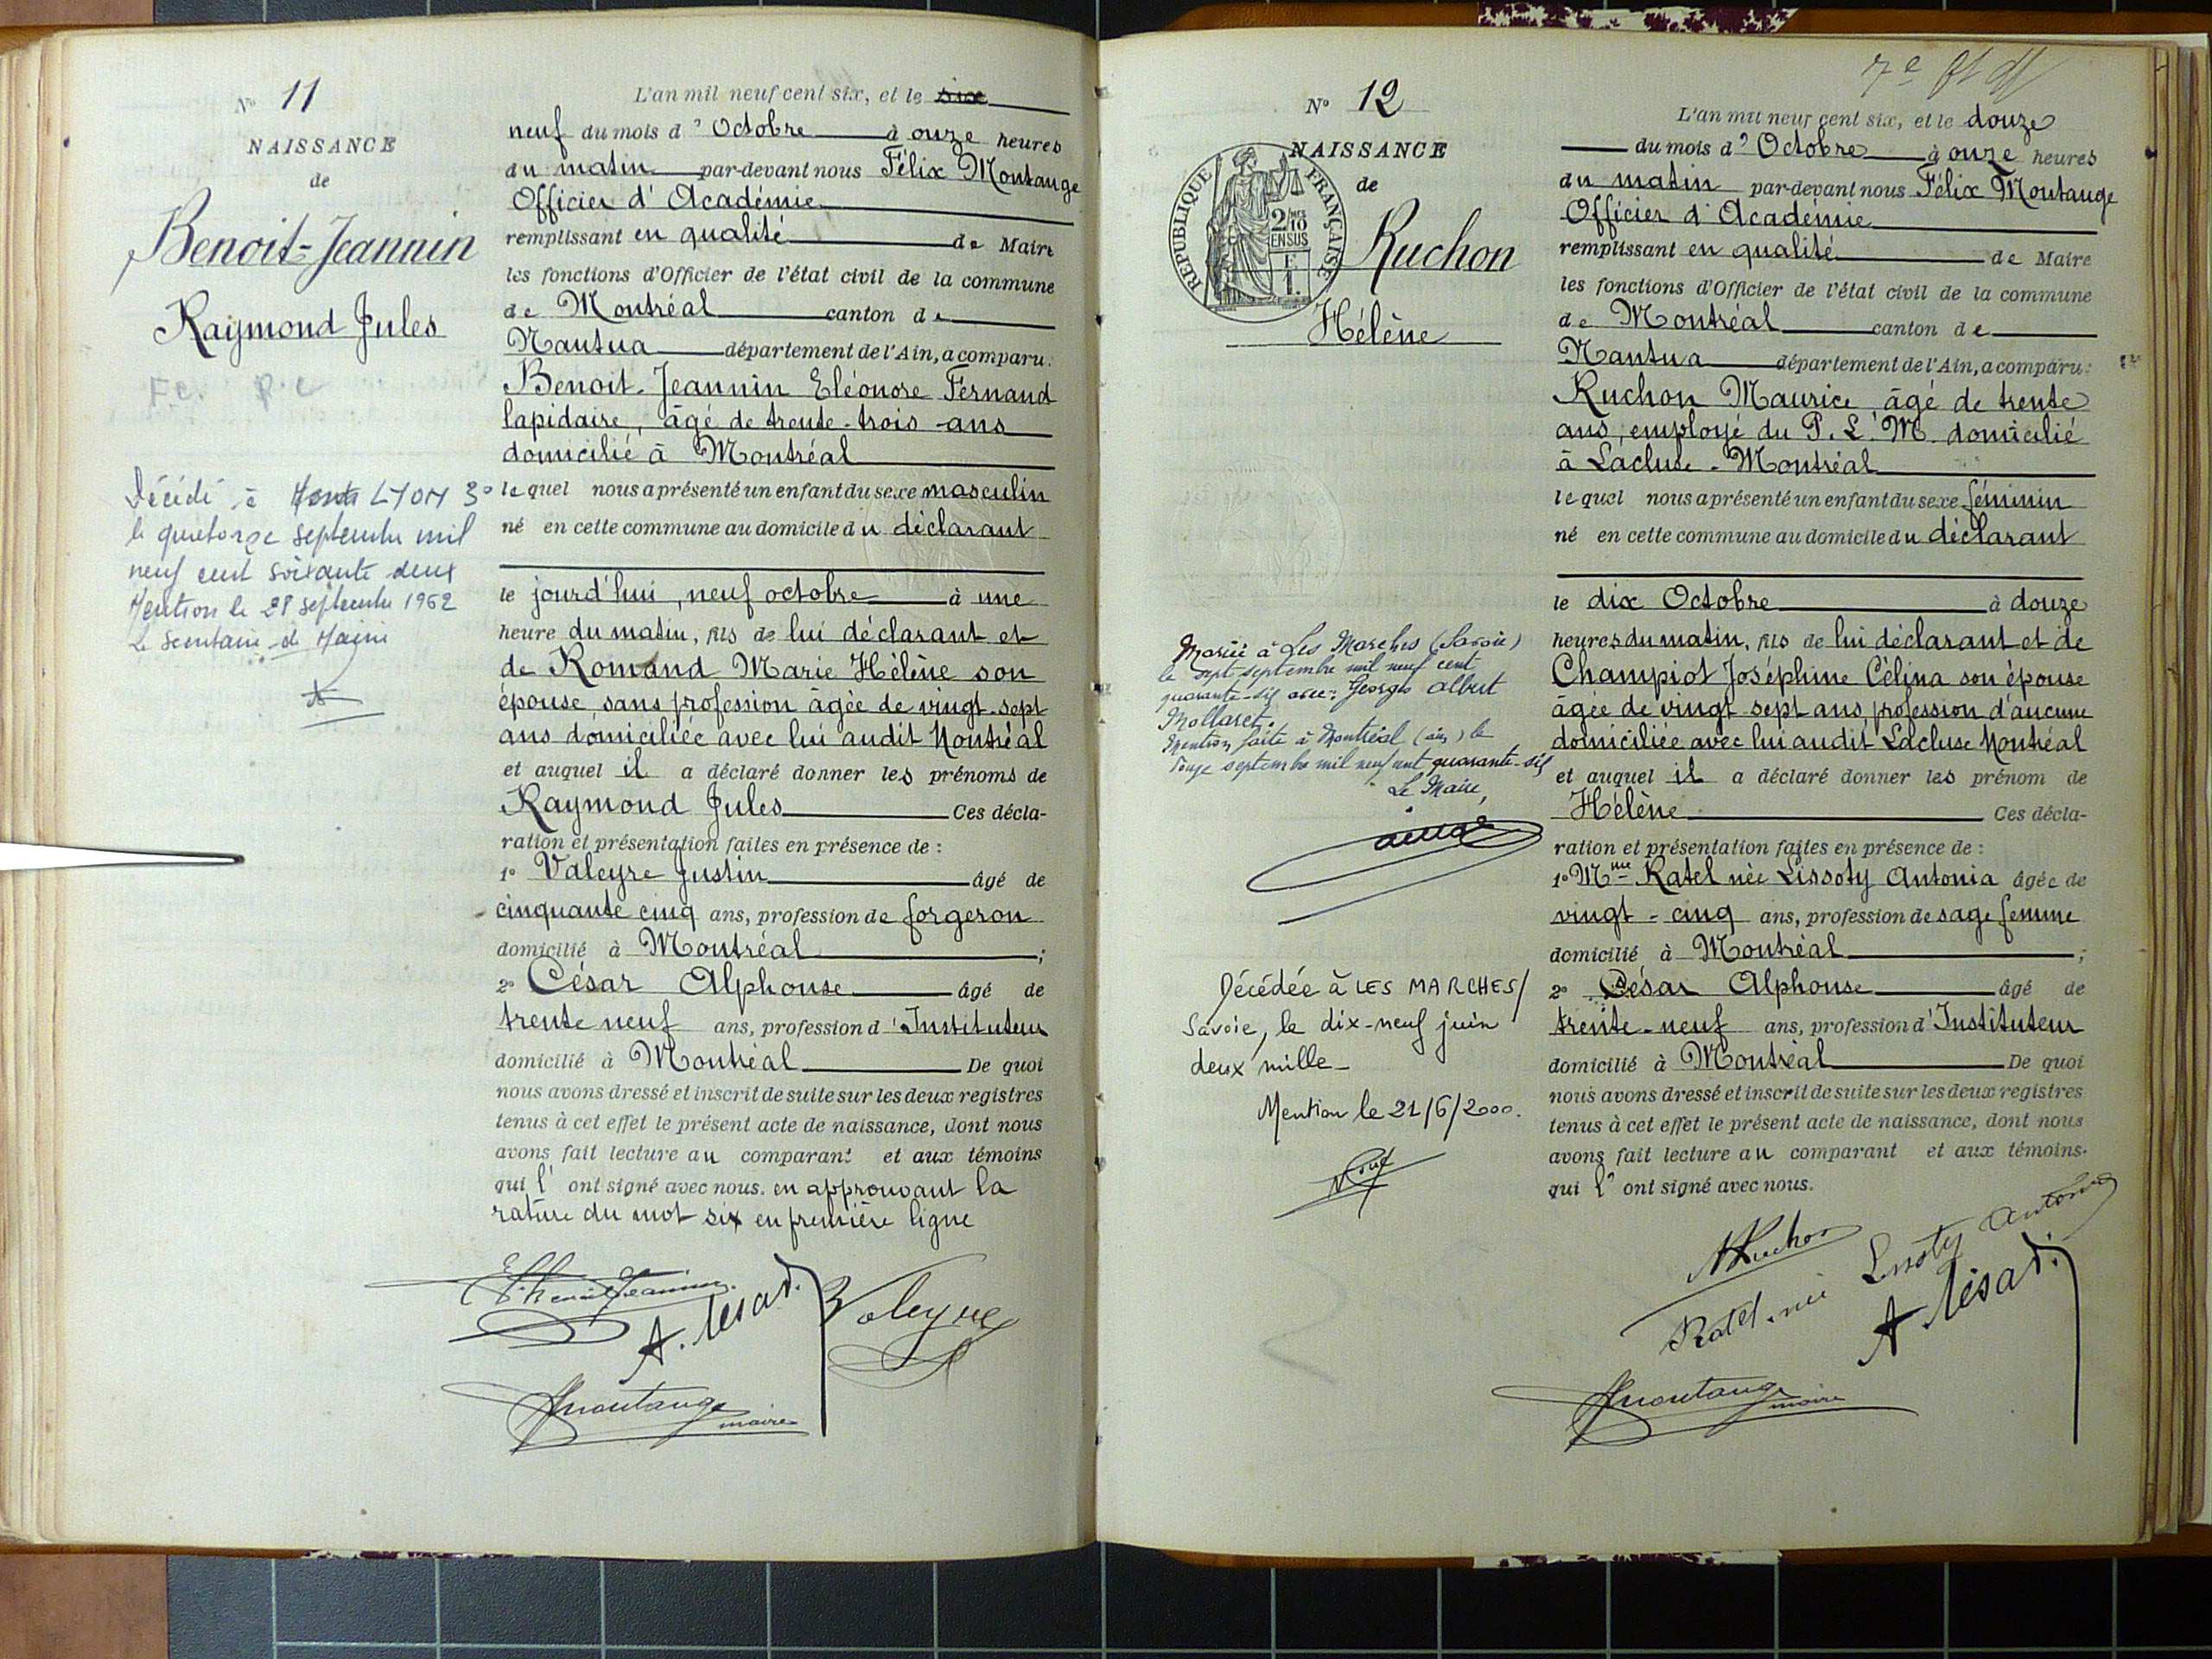 N° 11
NAISSANCE
de
Benoit-Jeannin
Raymond Jules
Décédé à LYON 3°
le quatorze septembre mil
neuf cent soixante deux
Mention le 28 septembre 1962
Le secrétaire de Mairie
L'an mil neuf cent six, et le six
neuf du mois d' Octobre à onze heures
du matin par-devant nous Félix Montange
Officier d'Académie
remplissant en qualité de Maire
les fonctions d'Officier de l'état civil de la commune
de Montréal canton de
Nantua département de l'Ain, a comparu:
Benoit-Jeannin Eléonore Fernand
lapidaire, âgé de trente-trois ans
domicilié à Montréal
lequel nous a présenté un enfant du sexe masculin
né en cette commune au domicile du déclarant
le jourd'hui, neuf octobre à une
heure du matin, fils de lui déclarant et
de Romand Marie Hélène son
épouse, sans profession âgée de vingt-sept
ans domiciliée avec lui audit Montréal
et auquel il a déclaré donner les prénoms de
Raymond Jules Ces décla-
ration et présentation faites en présence de :
1° Valeyre Justin âgé de
cinquante cinq ans, profession de forgeron
domicilié à Montréal ;
2° César Alphonse âgé de
trente neuf ans, profession d'Instituteur
domicilié à Montréal De quoi
nous avons dressé et inscrit de suite sur les deux registres
tenus à cet effet le présent acte de naissance, dont nous
avons fait lecture au comparant et aux témoins
qui l' ont signé avec nous. en approuvant la
rature du mot six en première ligne
A. César
Valeyre
Montange
maire
7e
N° 12
NAISSANCE
de
RÉPUBLIQUE FRANÇAISE
2/10 EN SUS
F
1.
Ruchon
Hélène
Mariée à Les Marches (Savoie)
le sept septembre mil neuf cent
quarante-six avec: Georges Albert
Mollaret.
Mention faite à Montréal (ain) le
douze septembre mil neuf cent quarante-six
Le Maire,
Décédée à LES MARCHES/
Savoie, le dix-neuf juin
deux mille_
Mention le 21/6/2000.
L'an mil neuf cent six, et le douze
du mois d' Octobre à onze heures
du matin par-devant nous Félix Montange
Officier d'Académie
remplissant en qualité de Maire
les fonctions d'Officier de l'état civil de la commune
de Montréal canton de
Nantua département de l'Ain, a comparu:
Ruchon Maurice âgé de trente
ans, employé du P. L. M. domicilié
à Lacluse-Montréal
lequel nous a présenté un enfant du sexe féminin
né en cette commune au domicile du déclarant
le dix Octobre à douze
heures du matin, fils de lui déclarant et de
Champiot Joséphine Célina son épouse
âgée de vingt sept ans, profession d'aucune
domiciliée avec lui audit Lacluse Montréal
et auquel il a déclaré donner les prénom de
Hélène Ces décla-
ration et présentation faites en présence de :
1° Mme Ratel née Lissoty Antonia âgée de
vingt-cinq ans, profession de sage femme
domicilié à Montréal ;
2° César Alphonse âgé de
trente-neuf ans, profession d'Instituteur
domicilié à Montréal De quoi
nous avons dressé et inscrit de suite sur les deux registres
tenus à cet effet le présent acte de naissance, dont nous
avons fait lecture au comparant et aux témoins
qui l' ont signé avec nous.
Ruchon
Ratel née Lissoty Antonia
A. César
Montange
maire